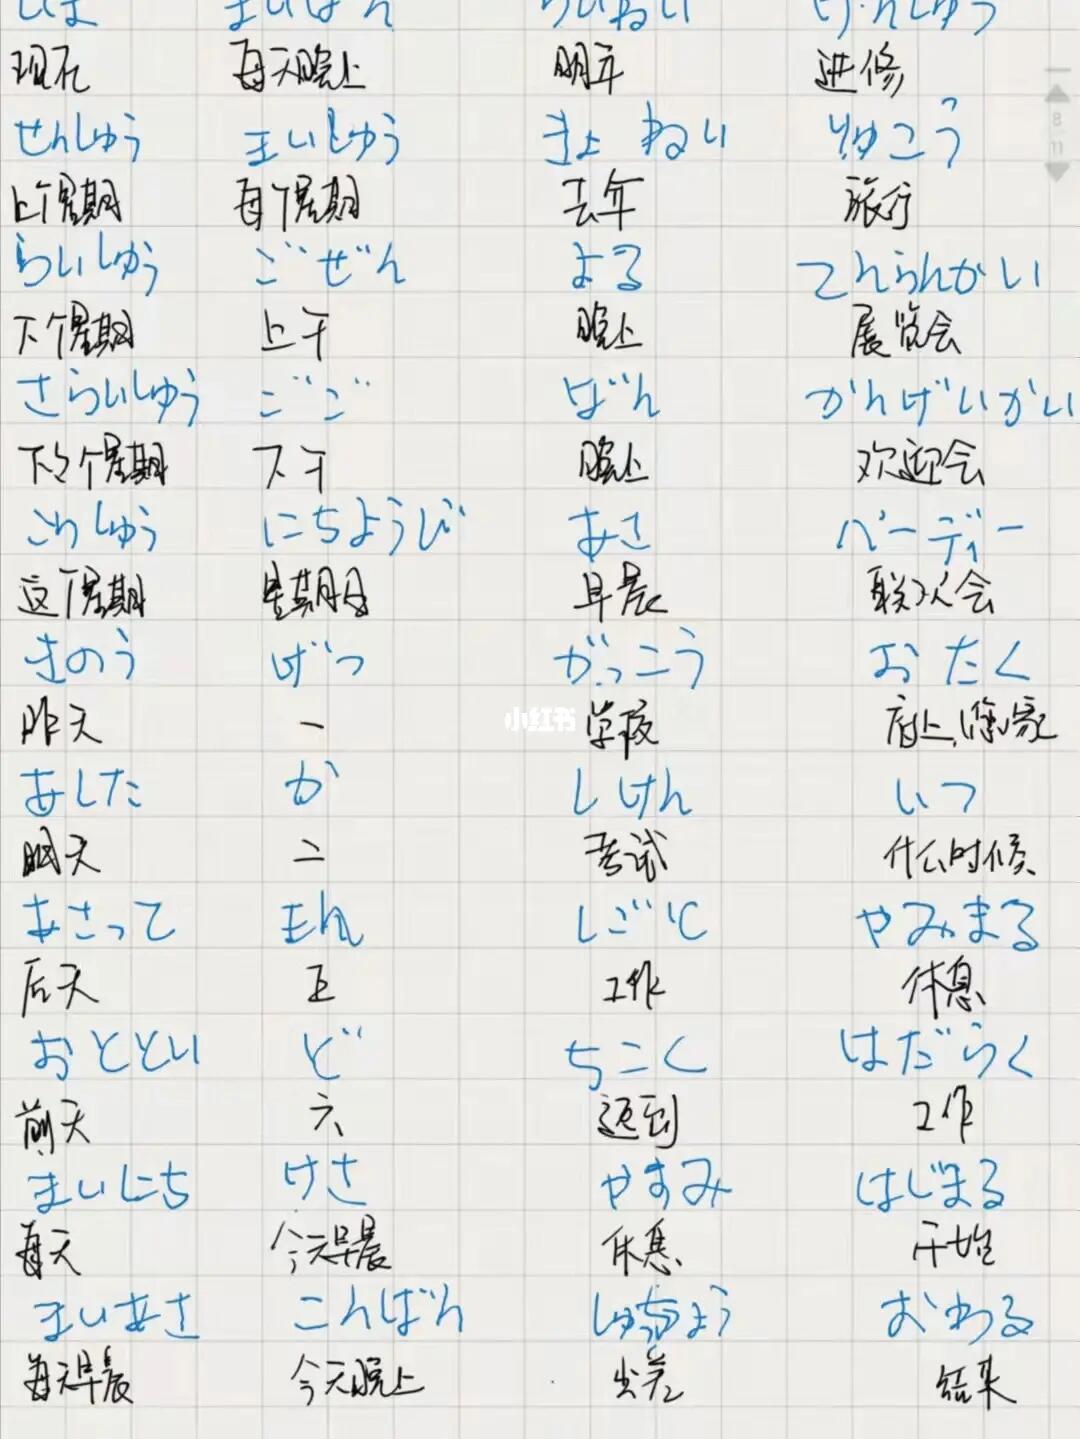 いま まいばん らいねい けんしゅう
现在 每天晚上 明年 进修
せんしゅう まいしゅう きょねい りゅこう
上个星期 每个星期 去年 旅行
らいしゅう ごぜん よる てんらんかい
下个星期 上午 晚上 展览会
さらいしゅう ごご ばん かんげいかい
下下个星期 下午 晚上 欢迎会
こわしゅう にちようび あさ パーディー
这个星期 星期日 早晨 联欢会
きのう げつ がっこう おたく
昨天 一 学校 府上、您家
小红书
あした か しけん いつ
明天 二 考试 什么时候
あさって しごと やみまる
后天 五 工作 休息
おととい ど ちこく はだらく
前天 六 迟到 工作
まいにち けさ やすみ はじまる
每天 今天早晨 休息 开始
まいあさ こんばん しゅっちょう おわる
每天早晨 今天晚上 出差 结束
8
11